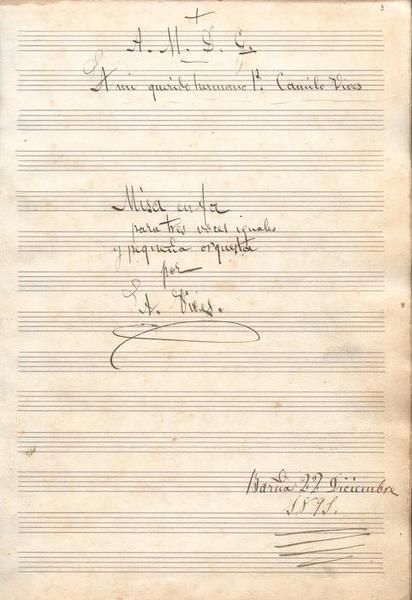 3
A. M. D. G.
A mi querido hermano P. Camilo Vives
Misa en fa
para tres voces iguales
y pequeña orquesta
por
A. Vives.
Barña 22 Diciembre
1891.